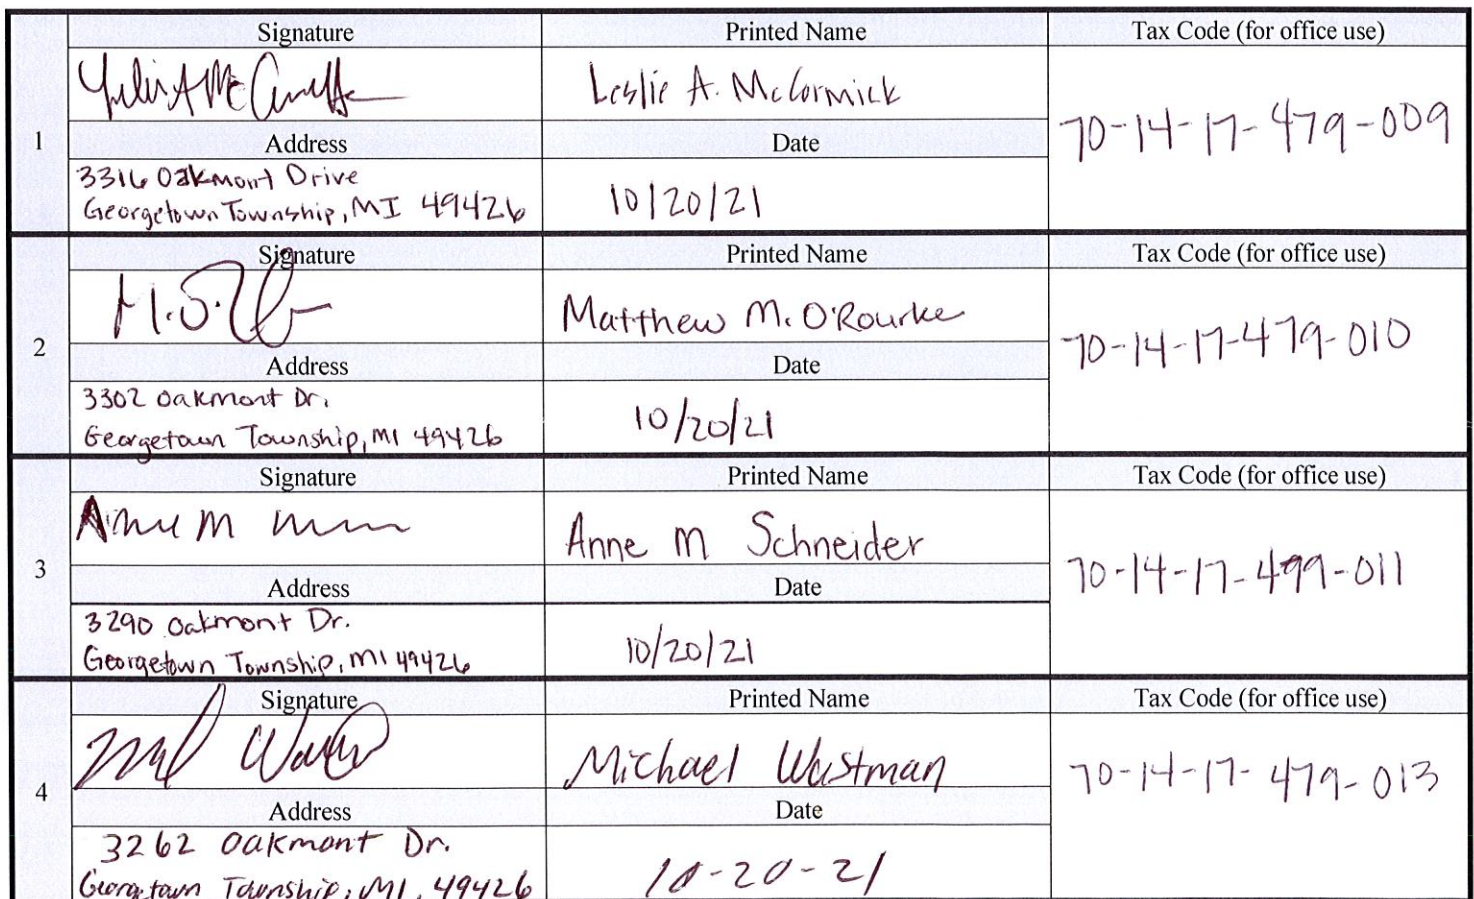 Signature Printed Name Tax Code (for office use)
Leslie A. McCormick
1 Address Date 70-14-17-479-009
3316 Oakmont Drive
Georgetown Township, MI 49426 10/20/21
Signature Printed Name Tax Code (for office use)
Matthew M. O'Rourke
2 Address Date 70-14-17-479-010
3302 Oakmont Dr.
Georgetown Township, MI 49426 10/20/21
Signature Printed Name Tax Code (for office use)
Anne M Schneider
3 Address Date 70-14-17-499-011
3290 Oakmont Dr.
Georgetown Township, MI 49426 10/20/21
Signature Printed Name Tax Code (for office use)
Michael Wustman 70-14-17-479-013
4 Address Date
3262 Oakmont Dr.
Georgetown Township, MI, 49426 10-20-21